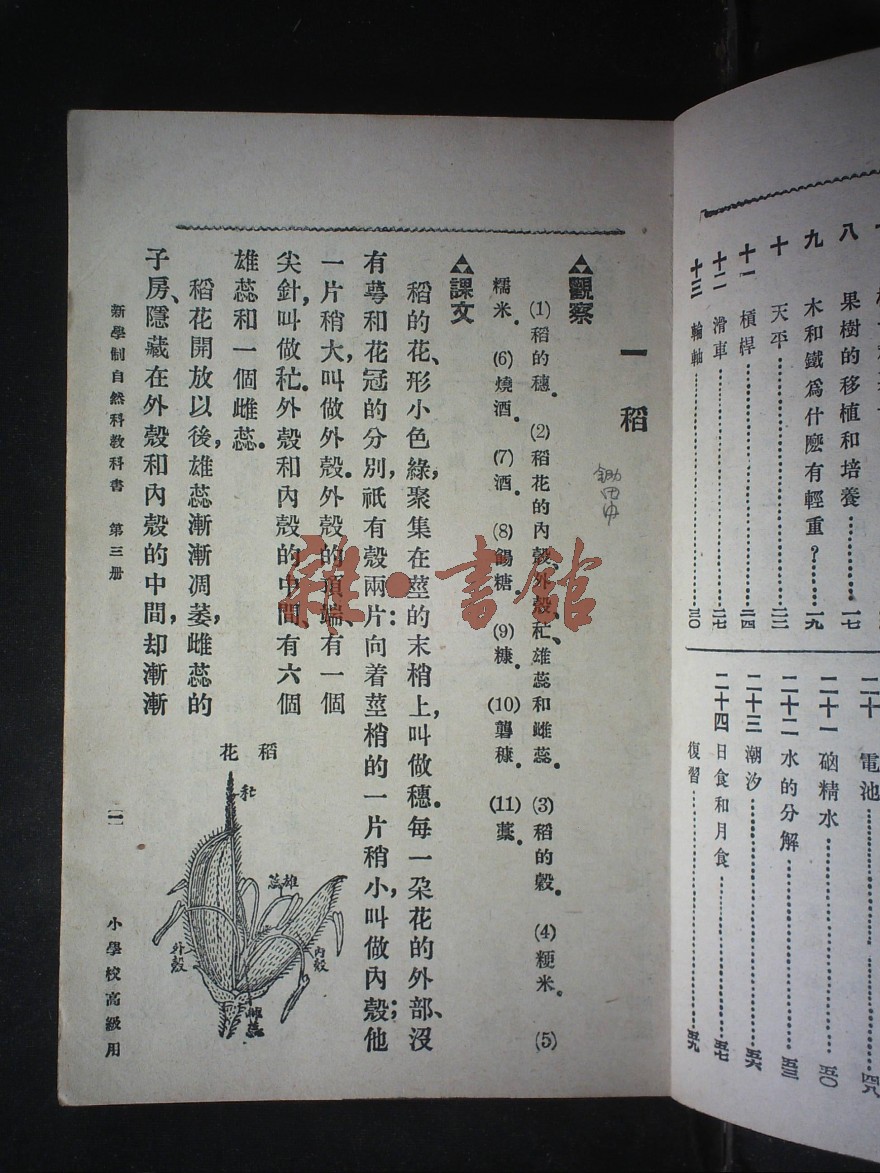 八　果樹的移植和培養……一七
九　木和鐵爲什麽有輕重？……一九
十　天平……二二
十一　槓桿……二四
十二　滑車……二七
十三　輪軸……三〇
二十　電池……四八
二十一　硇精水……五〇
二十二　水的分解……五三
二十三　潮汐……五六
二十四　日食和月食……五七
復習……五九
一　稻
觀察
(1)稻的穗。(2)稻花的內殼、外殼、秔、雄蕊和雌蕊。(3)稻的穀。(4)粳米。(5)
糯米。(6)燒酒。(7)酒。(8)餳糖。(9)糠。(10)礱糠。(11)藁。
課文
稻的花、形小色綠，聚集在莖的末梢上，叫做穗。每一朵花的外部、沒
有萼和花冠的分別，祇有殼兩片：向着莖梢的一片稍小，叫做內殼；他
一片稍大，叫做外殼。外殼的頂端、有一個
尖針，叫做秔。外殼和內殼的中間、有六個
雄蕊和一個雌蕊。
稻花開放以後，雄蕊漸漸凋萎，雌蕊的
子房、隱藏在外殼和內殼的中間，却漸漸
稻花
秔
雄蕊
外殼
內殼
雌蕊
新學制自然科教科書　第三册
一
小學校高級用
雜·書館